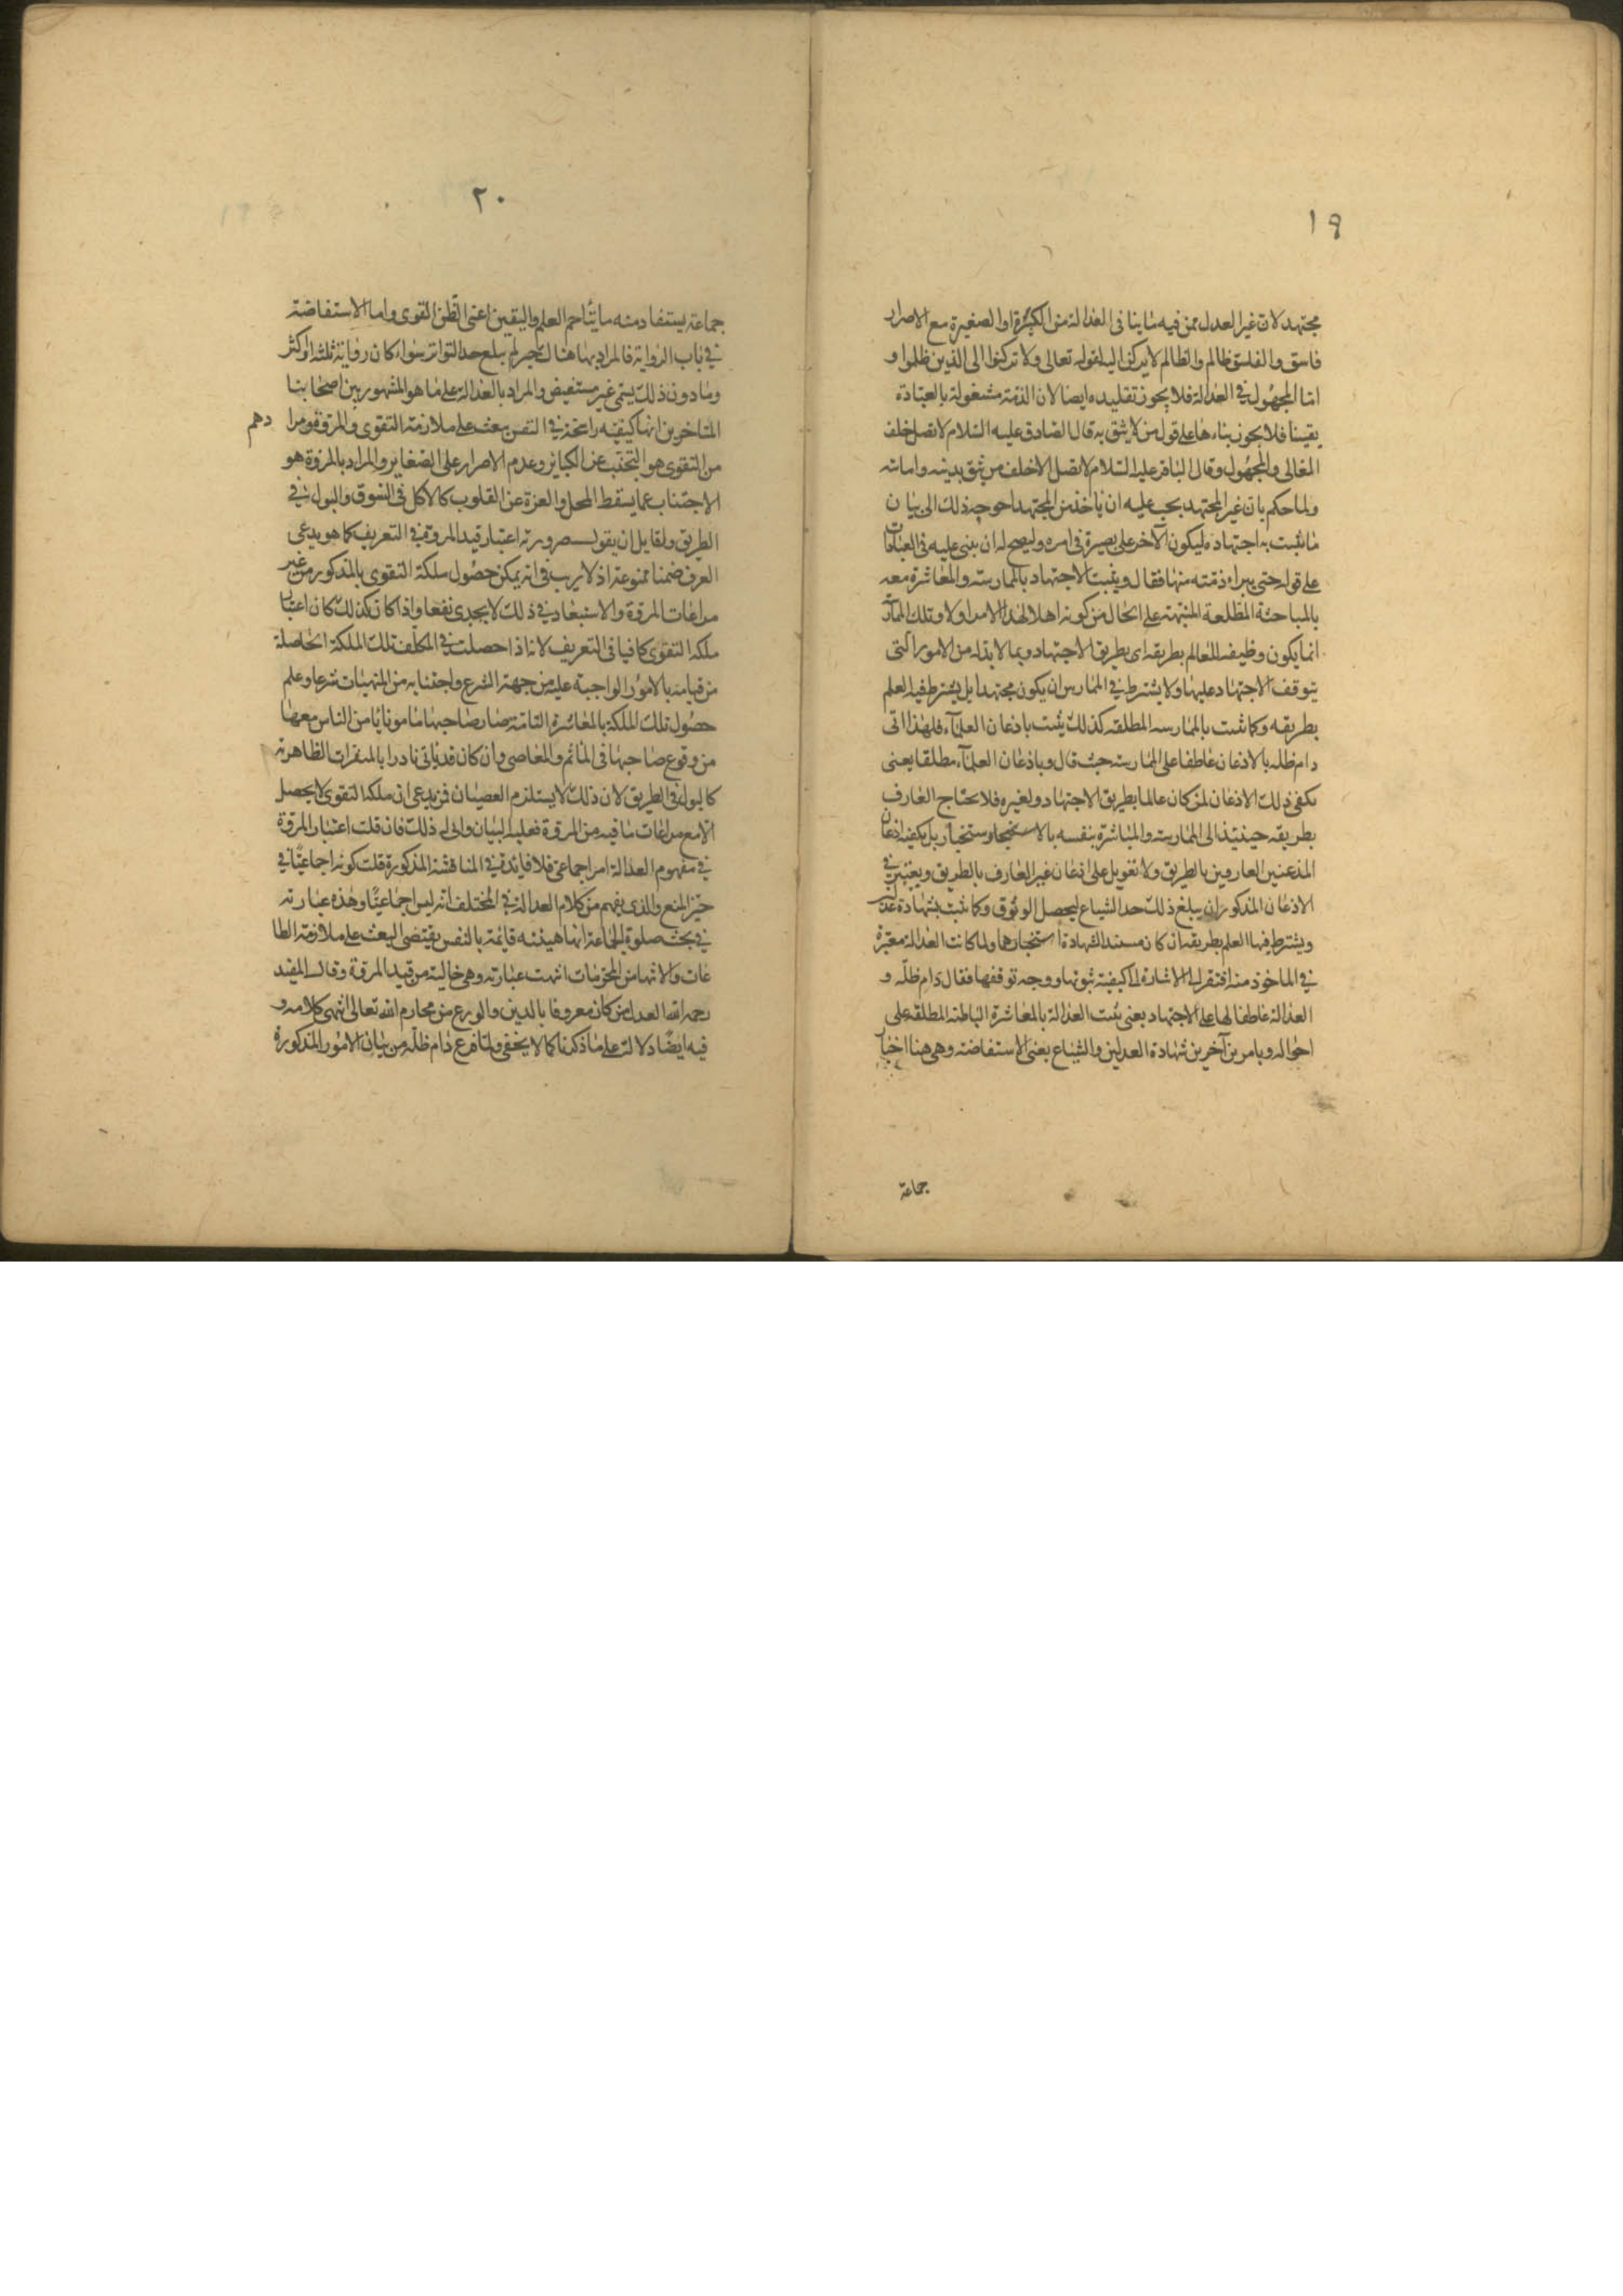 ١٩
مجتهد لان غير العدل ممن فيه ما ينافى العدالة من الكبيرة او الصغيرة مع الاصرار
فاسق والفاسق ظالم والظالم لا يركن اليه لقوله تعالى ولا تركنوا الى الذين ظلموا و
اما المجهول في العدالة فلا يجوز تقليده ايضا لان الذمة مشغولة بالعبادة
يقينا فلا يجوز بناءها على قول من لا يثق به قال الصادق عليه السلام لا تصل خلف
الغالى والمجهول وقال الباقر عليه السلام لا تصل الا خلف من تثق بدينه وامانته
ولما حكم بان غير المجتهد يجب عليه ان ياخذ من المجتهد احوجه ذلك الى بيان
ما يثبت به اجتهاده ليكون الآخر على بصيرة فى امره وليصح له ان يبنى عليه فى العبادات
على قوله حتى يبراء ذمته منها فقال ويثبت الاجتهاد بالممارسة والمعاشرة معه
بالمباحثة المطلعة المنبهة على الحال من كونه اهلا لهذا الامر اولا وتلك
انما يكون وظيفه للعالم بطريقه اى بطريق الاجتهاد وبما لابد له من الامور التى
يتوقف الاجتهاد عليها ولا يشترط في الممارس ان يكون مجتهدا بل يشترط فيه العلم
بطريقه وكما يثبت بالممارسه المطلقه كذلك يثبت باذعان العلمآء فلهذا اتى
دام ظله بالاذعان عاطفا على الممارسة حيث قال وباذعان العلمآء مطلقا يعنى
يكفى ذلك الاذعان لمن كان عالما بطريق الاجتهاد ولغيره فلا يحتاج العارف
بطريقه حينئذ الى الممارسة والمباشرة بنفسه بل يكفيه اذعان
المذعنين العارفين بالطريق ولا تعويل على اذعان غير العارف بالطريق ويعتبر في
الاذعان المذكور ان يبلغ ذلك حد الشياع ليحصل الوثوق وكما يثبت بشهادة عدلين
ويشترط فيها العلم بطريقه ان كان مستند الشهادة استخبارها ولما كانت العدالة معتبرة
في الماخوذ منه افتقر الى الاشارة الى كيفية ثبوتها ووجه توقفها فقال دام ظلّه و
العدالة عاطفا لها على الاجتهاد يعنى يثبت العدالة بالمعاشرة الباطنة المطلقه على
احواله وبامرين آخرين شهادة العدلين والشياع بمعنى الاستفاضة وهى هنا اخبار
جماعة
٢٠
جماعة يستفاد منه ما يتأخم العلم واليقين اعنى الظن القوى واما الاستفاضة
في باب الرواية فالمراد بها هنالك خبر لم يبلغ حد التواتر سواء كان رواية ثلثه او اكثر
وما دون ذلك يسمى غير مستفيض والمراد بالعدالة على ما هو المشهور بين اصحابنا
المتاخرين انها كيفيه راسخة في النفس يبعث على ملازمة التقوى والمروة ومرا دهم
من التقوى هو التجنب عن الكبائر وعدم الاصرار على الصغائر والمراد بالمروة هو
الاجتناب عما يسقط المحل والعزة عن القلوب كالاكل فى السوق والبول في
الطريق ولقايل ان يقول ضرورة اعتبار قيد المروة في التعريف كما هو يدعى
العرف ضمنا ممنوعة اذ لا ريب فى انه يمكن حصول ملكة التقوى بالمذكور من غير
مراعات المروة والاستبعاد في ذلك لا يجدى نفعا واذا كان كذلك كان اعتبار
ملكة التقوى كافيا فى التعريف لانه اذا حصلت في المكلف تلك الملكة الحاصلة
من قيامه بالامور الواجبة عليه من جهة الشرع واجتنابه من المنهيات شرعا وعلم
حصول تلك الملكة بالمعاشرة التامة صار صاحبها مامونا يامن الناس معها
من وقوع صاحبها فى المآثم والمعاصى وان كان قد ياتى نادرا بالمنفرات الظاهرة
كالبول فى الطريق لان ذلك لا يستلزم العصيان فمن يدعى ان ملكة التقوى لا يحصل
الا مع مراعات ما فيه من المروة فعليه البيان وانى له ذلك فان قلت اعتبار المروة
في مفهوم العدالة امر اجماعى فلا فايدة في المناقشة المذكورة قلت كونه اجماعيا في
حيز المنع والذى يفهم من كلام العلامة في المختلف انه ليس اجماعيا وهذه عبارته
في بحث صلوة الجماعة انها هيئة قائمة بالنفس يقتضى البعث على ملازمة الطا
عات والانتهاء من المحرمات انتهت عبارته وهى خالية من قيد المروة وقال المفيد
رحمه الله العدل من كان معروفا بالدين والورع من محارم الله تعالى انتهى كلامه و
فيه ايضا دلالة على ما ذكرنا كما لا يخفى ولما فرع دام ظله من بيان الامور المذكورة